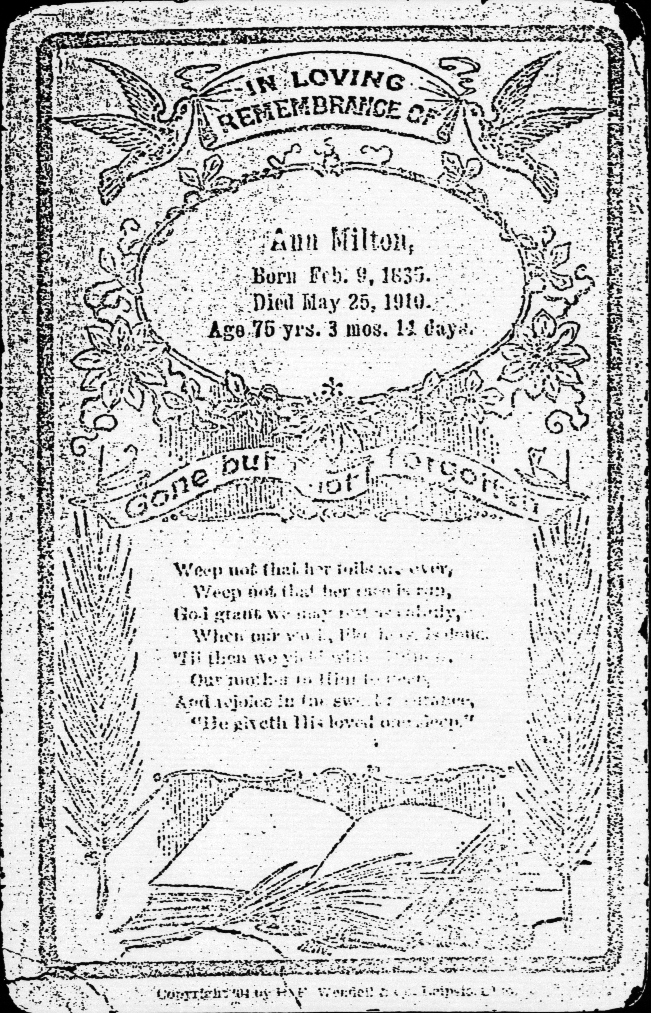 IN LOVING
REMEMBRANCE OF
Ann Milton,
Born Feb. 9, 1835.
Died May 25, 1910.
Age 75 yrs. 3 mos. 14 days.
Gone but not forgotten
Weep not that her toils are over,
Weep not that her race is run,
God grant we may rest as calmly,
When our work, like hers, is done.
'Til then we yield with
Our mother to Him to keep,
And rejoice in the sweet assurance,
"He giveth His loved one sleep."
Copyright '04 by H.F. Wendell & Co., Leipsic,